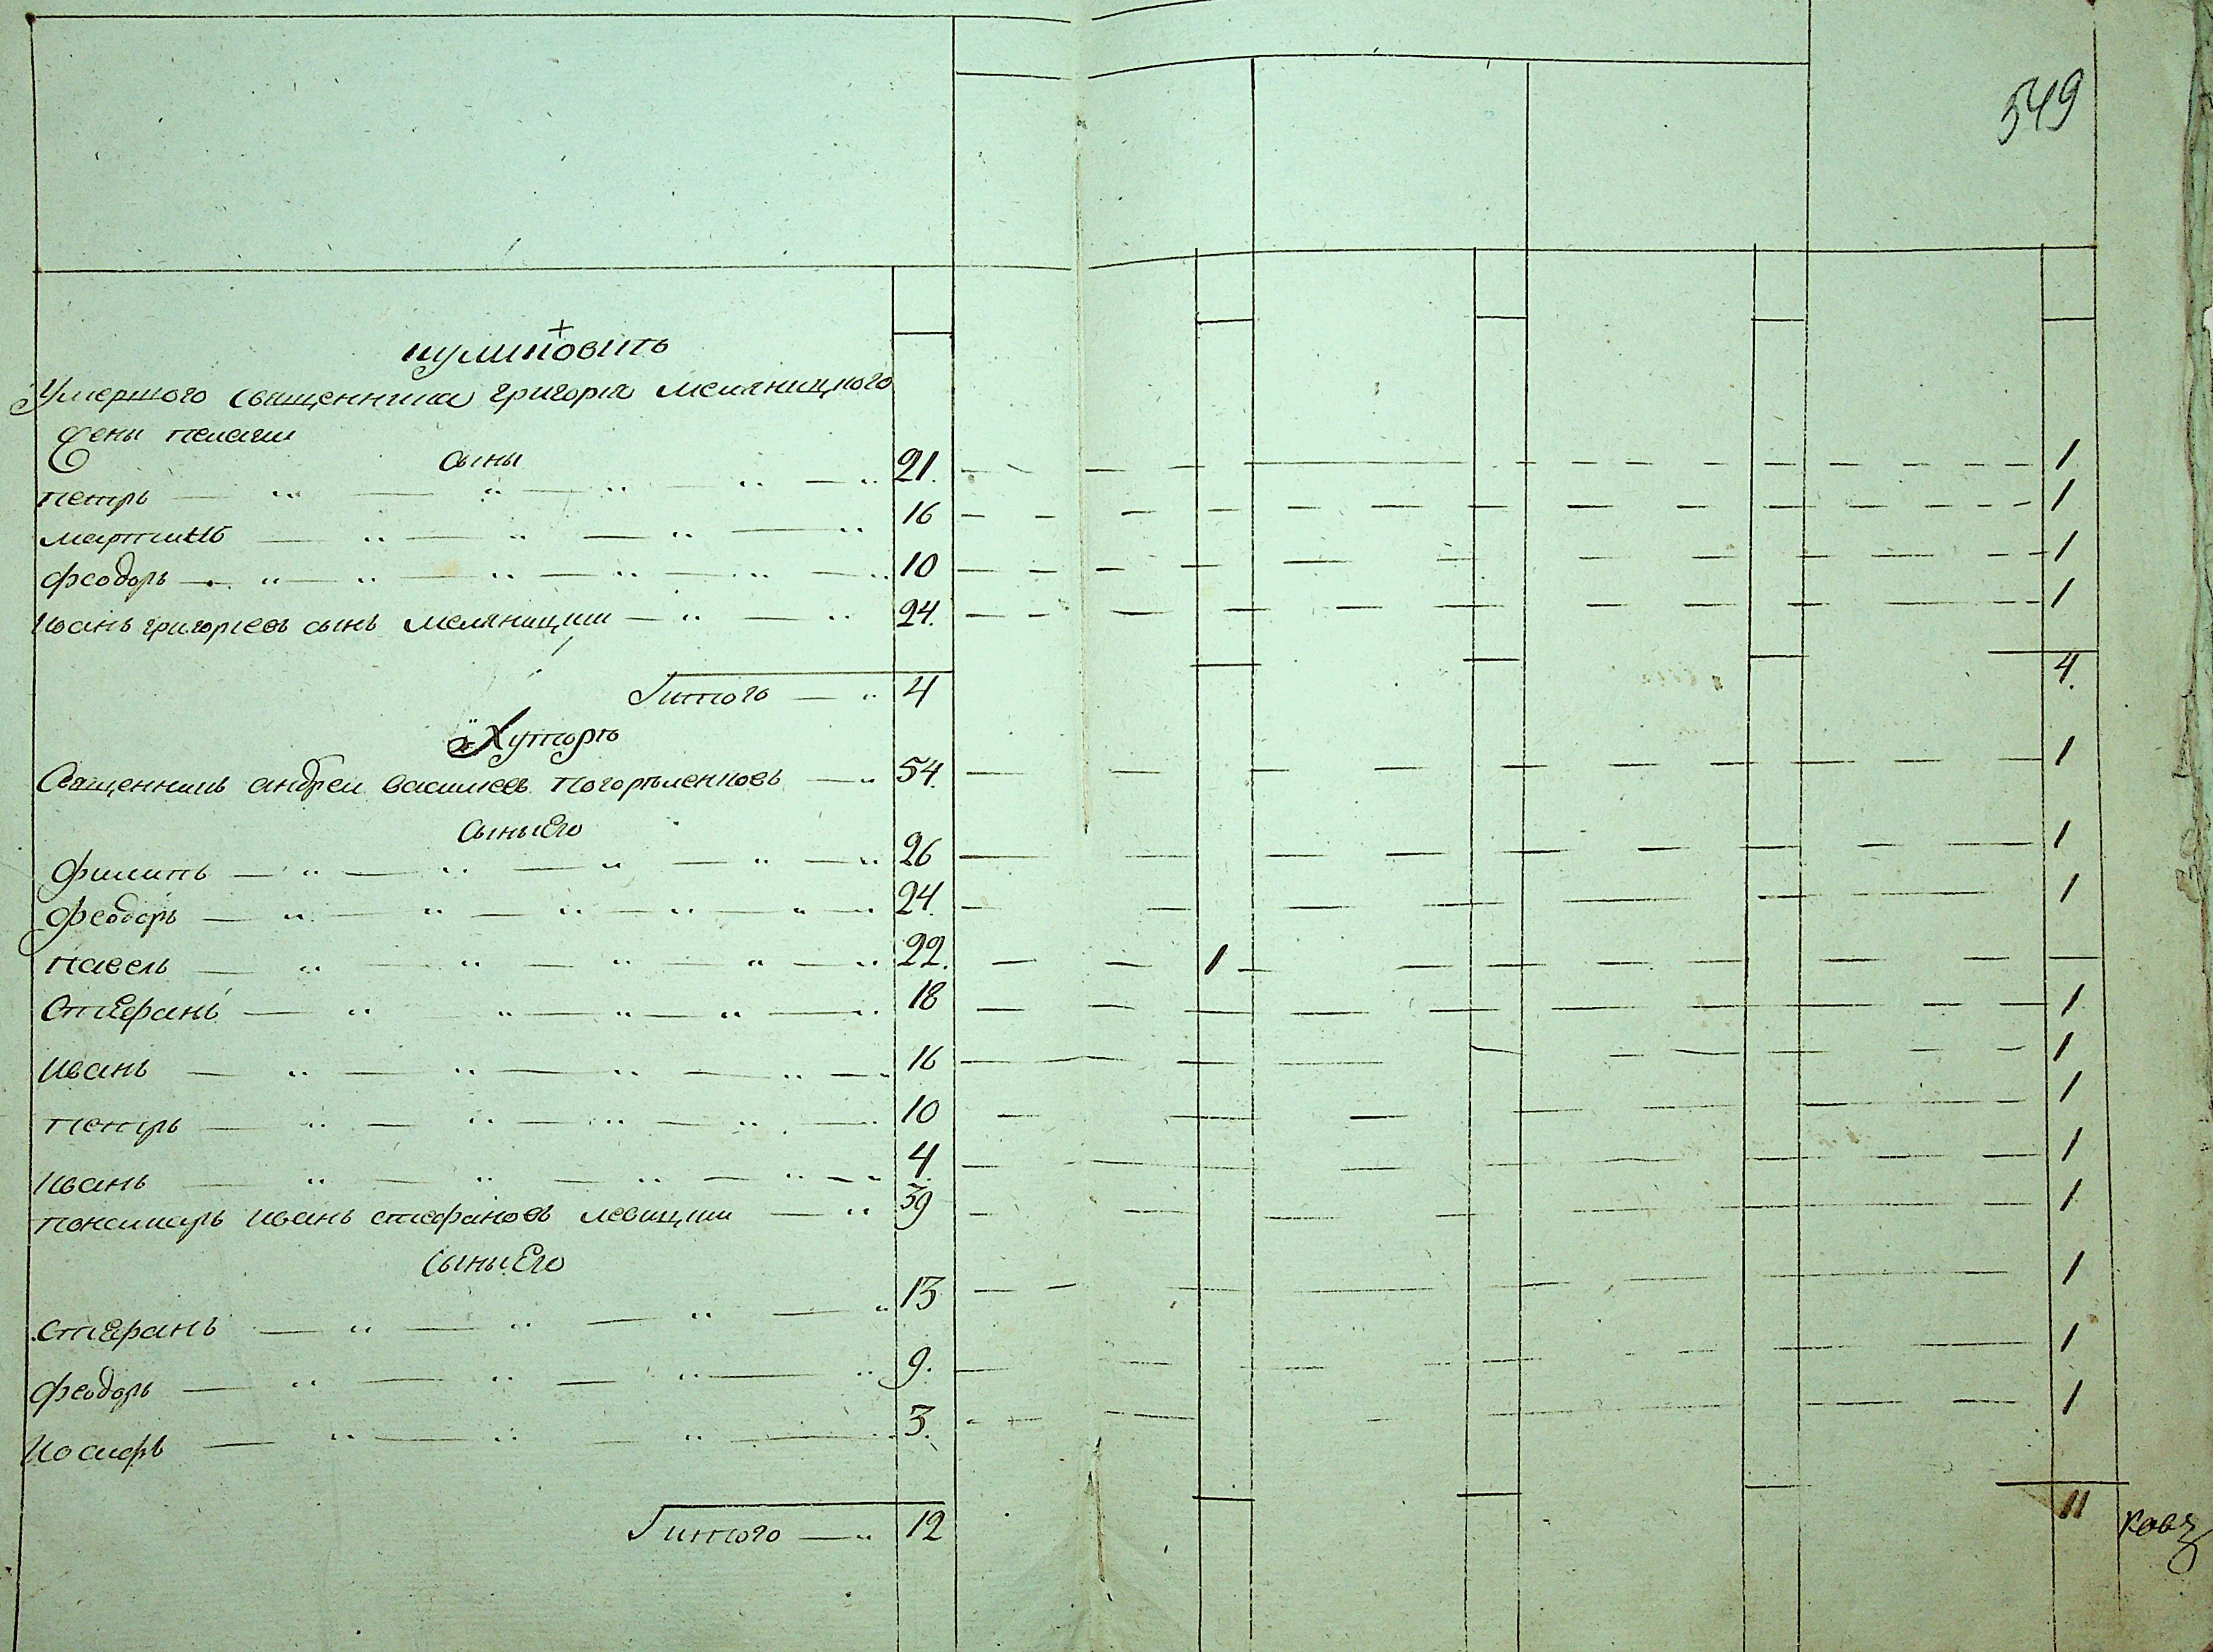 549
Умершого священника григория мелницкого
жены пелагеи
Сыны
петръ 21. 1
мартинъ 16 1
феодоръ 10 1
Иванъ григориевъ сынъ мелницкий 24. 1
Итого 4 4.
Хуторъ
Священникъ андрей василиевъ погорѣленковъ 54. 1
Сыны Его
филипъ 26 1
феодоръ 24. 1
павелъ 22. 1
Стефанъ 18 1
Иванъ 16 1
петръ 10 1
Иванъ 4. 1
пономарь иванъ стефановъ левицкий 39 1
Сыны Его
стефанъ 13 1
феодоръ 9. 1
Иосифъ 3. 1
Итого 12 11